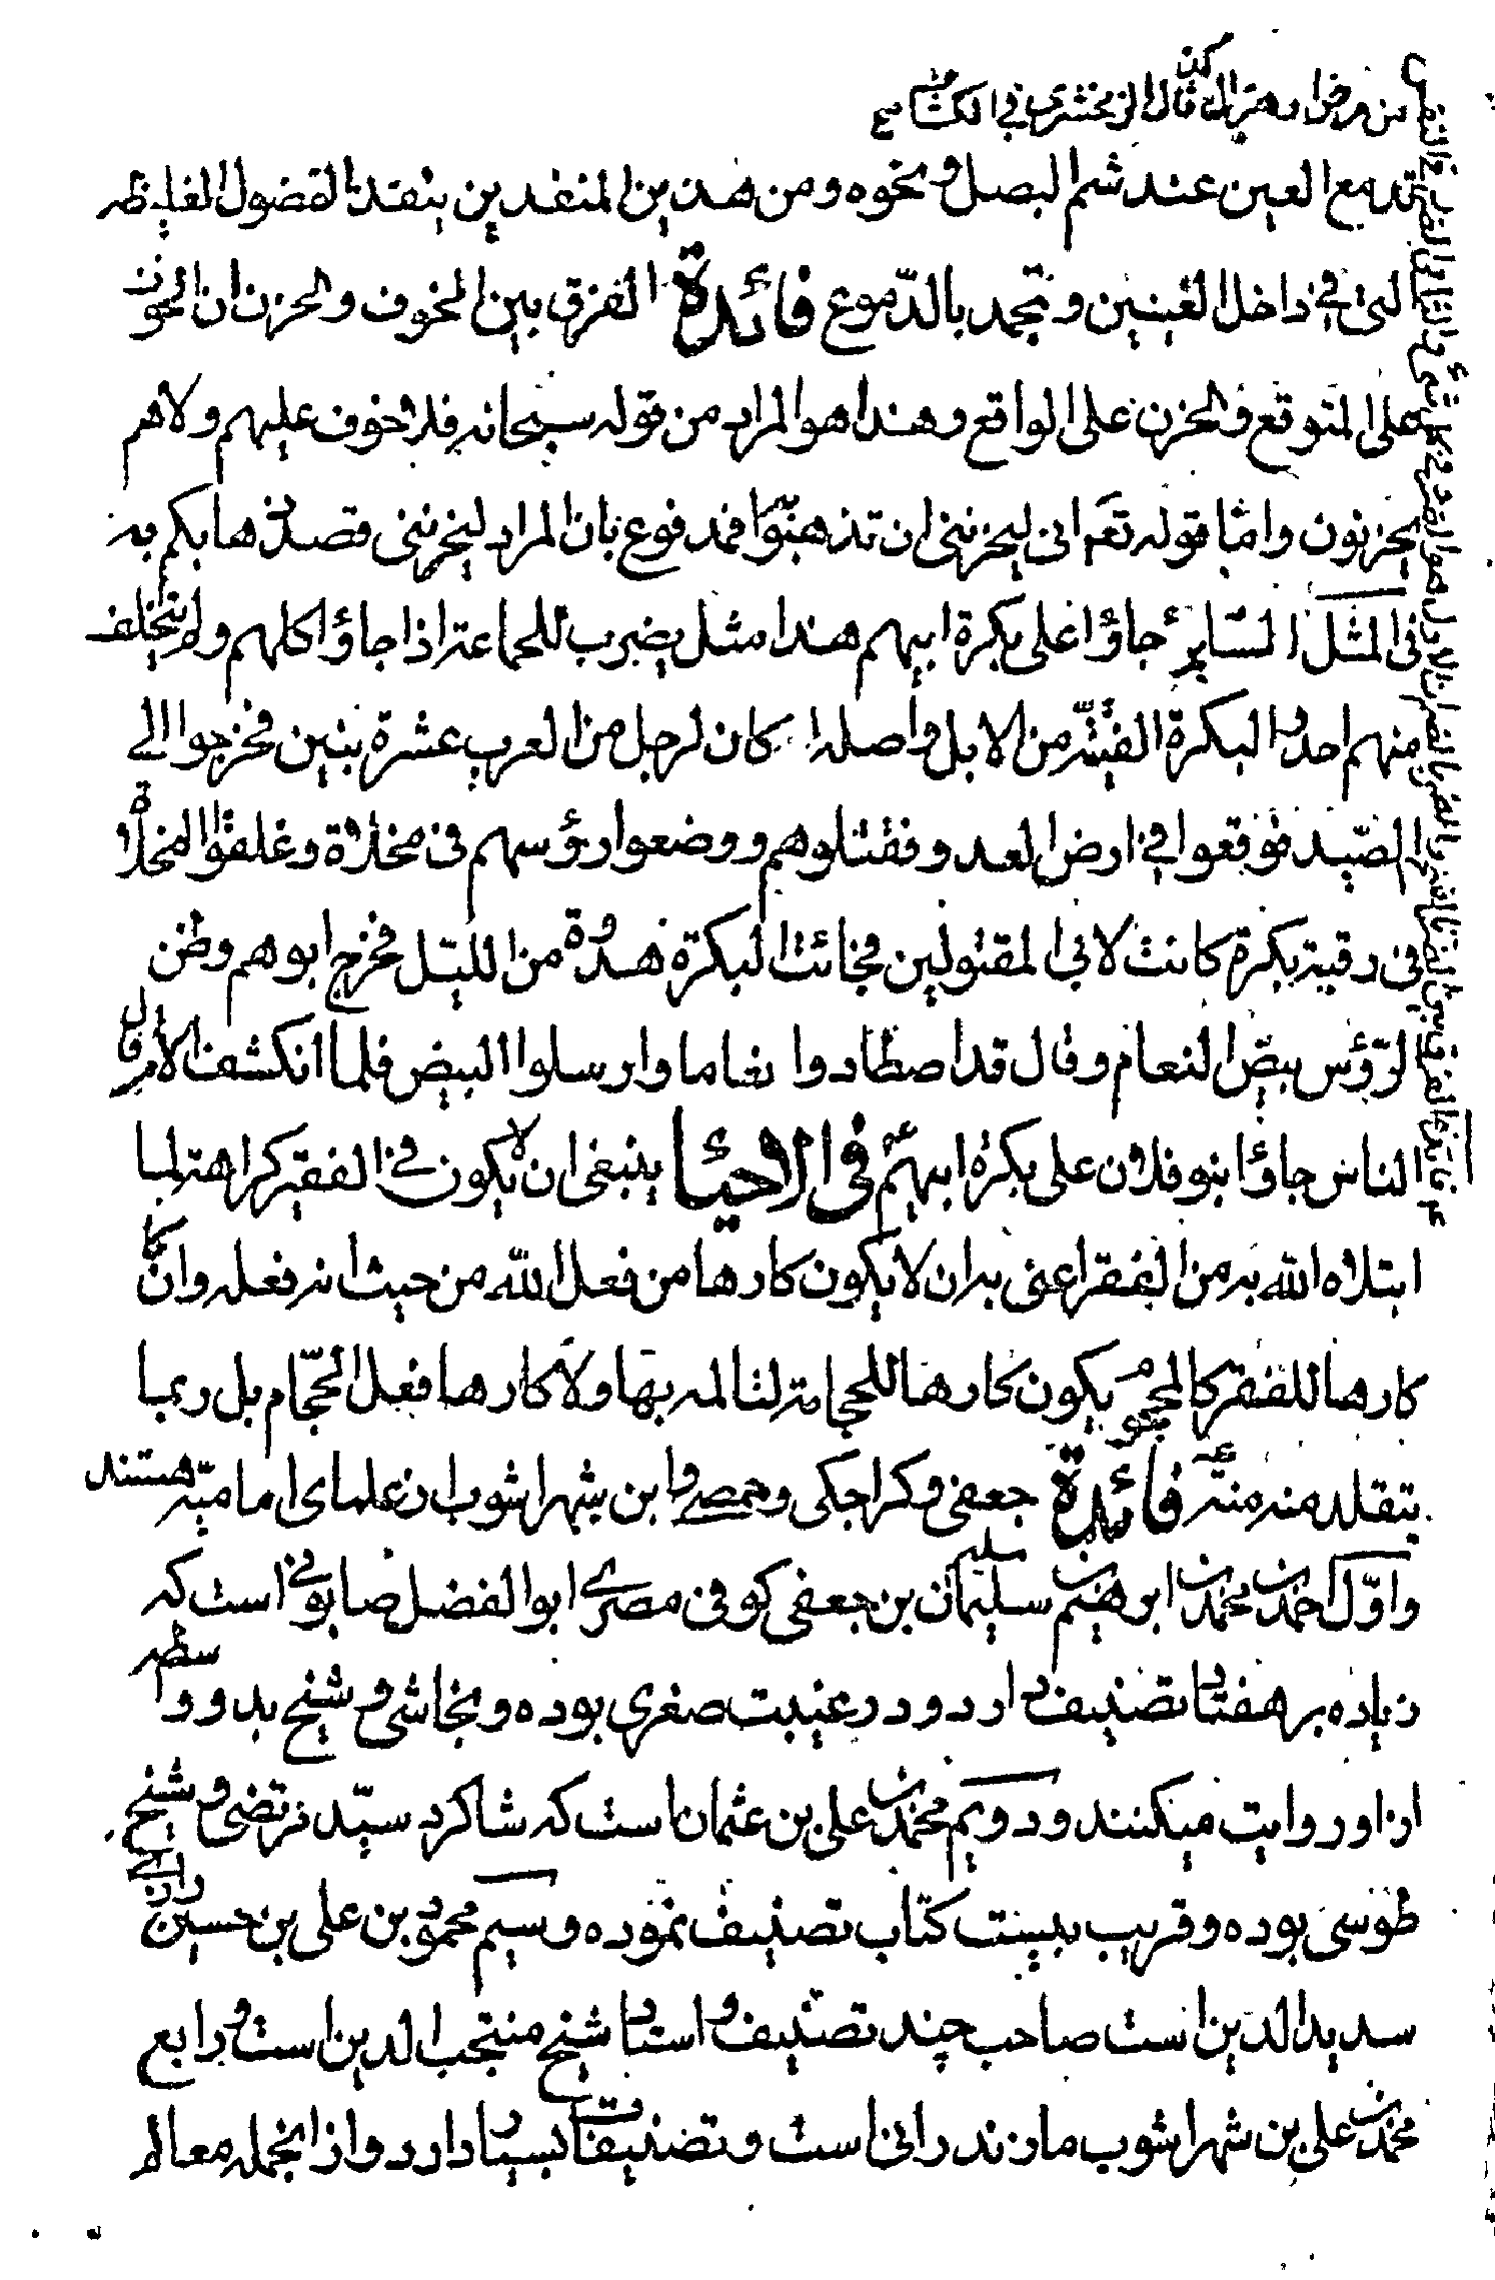 قال الزمخشري في الكشاف
تدمع العين عند شم البصل ونحوه ومن هذين المنفذين ينفذ الفضول الغليظه
التي في داخل العينين وتجمد بالدّموع فائدة الفرق بين الخوف والحزن ان الخوف
على المتوقع والحزن على الواقع وهذا هو المراد من قوله سبحانه فلا خوف عليهم ولا هم
يحزنون وامّا قوله تعم اني ليحزنني ان تذهبوا به فمدفوع بان المراد ليحزنني قصد ذهابكم به
في المثل السّاير جاؤا على بكرة ابيهم هذا مثل يضرب للجماعة اذا جاؤا كلهم ولم يتخلف
منهم احد والبكرة الفتيّة من الابل واصله كان لرجل من العرب عشرة بنين فخرجوا الى
الصّيد فوقعوا في ارض العدو فقتلوهم ووضعوا رؤسهم في مخلاة وعلقوا المخلاة
في رقبة بكرة كانت لابي المقتولين فجائت البكرة هدوة من الليل فخرج ابوهم وظن
الرّؤس بيض النعام وقال قد اصطادوا نعاما وارسلوا البيض فلما انكشف الامر قال
الناس جاؤا بنو فلان على بكرة ابيهم في الاحياء ينبغي ان لا يكون في الفقير كراهة لما
ابتلاه الله به من الفقر اعنى به ان لا يكون كارها من فعل الله من حيث انه فعله وان كان
كارها للفقر كالمحجوم يكون كارها للحجامة لتالمه بها ولا كارها فعل الحجّام بل ربما
يتقلد منه منّة فائدة جعفي وكراجكي وحمصي وابن شهراشوب از علماى اماميّه هستند
واوّل احمد بن محمد بن ابرهيم بن سليم بن سليمان بن جعفي كوفي مصري ابوالفضل صابوني است كه
زياده بر هفتاد تصنيف دارد و در غيبت صغرى بوده و نجاشي و شيخ بدو واسطه
از او روايت ميكنند و دويم محمد بن علي بن عثمان است كه شاكرد سيّد مرتضى و شيخ
طوسي بوده و قريب ببيست كتاب تصنيف نموده و سيم محمود بن علي بن حسين رازى
سديد الدين است صاحب چند تصنيف و استاد شيخ منتجب الدين است و رابع
محمد بن علي بن شهراشوب مازندراني است و تصنيفات بسيار دارد و از انجمله معالم